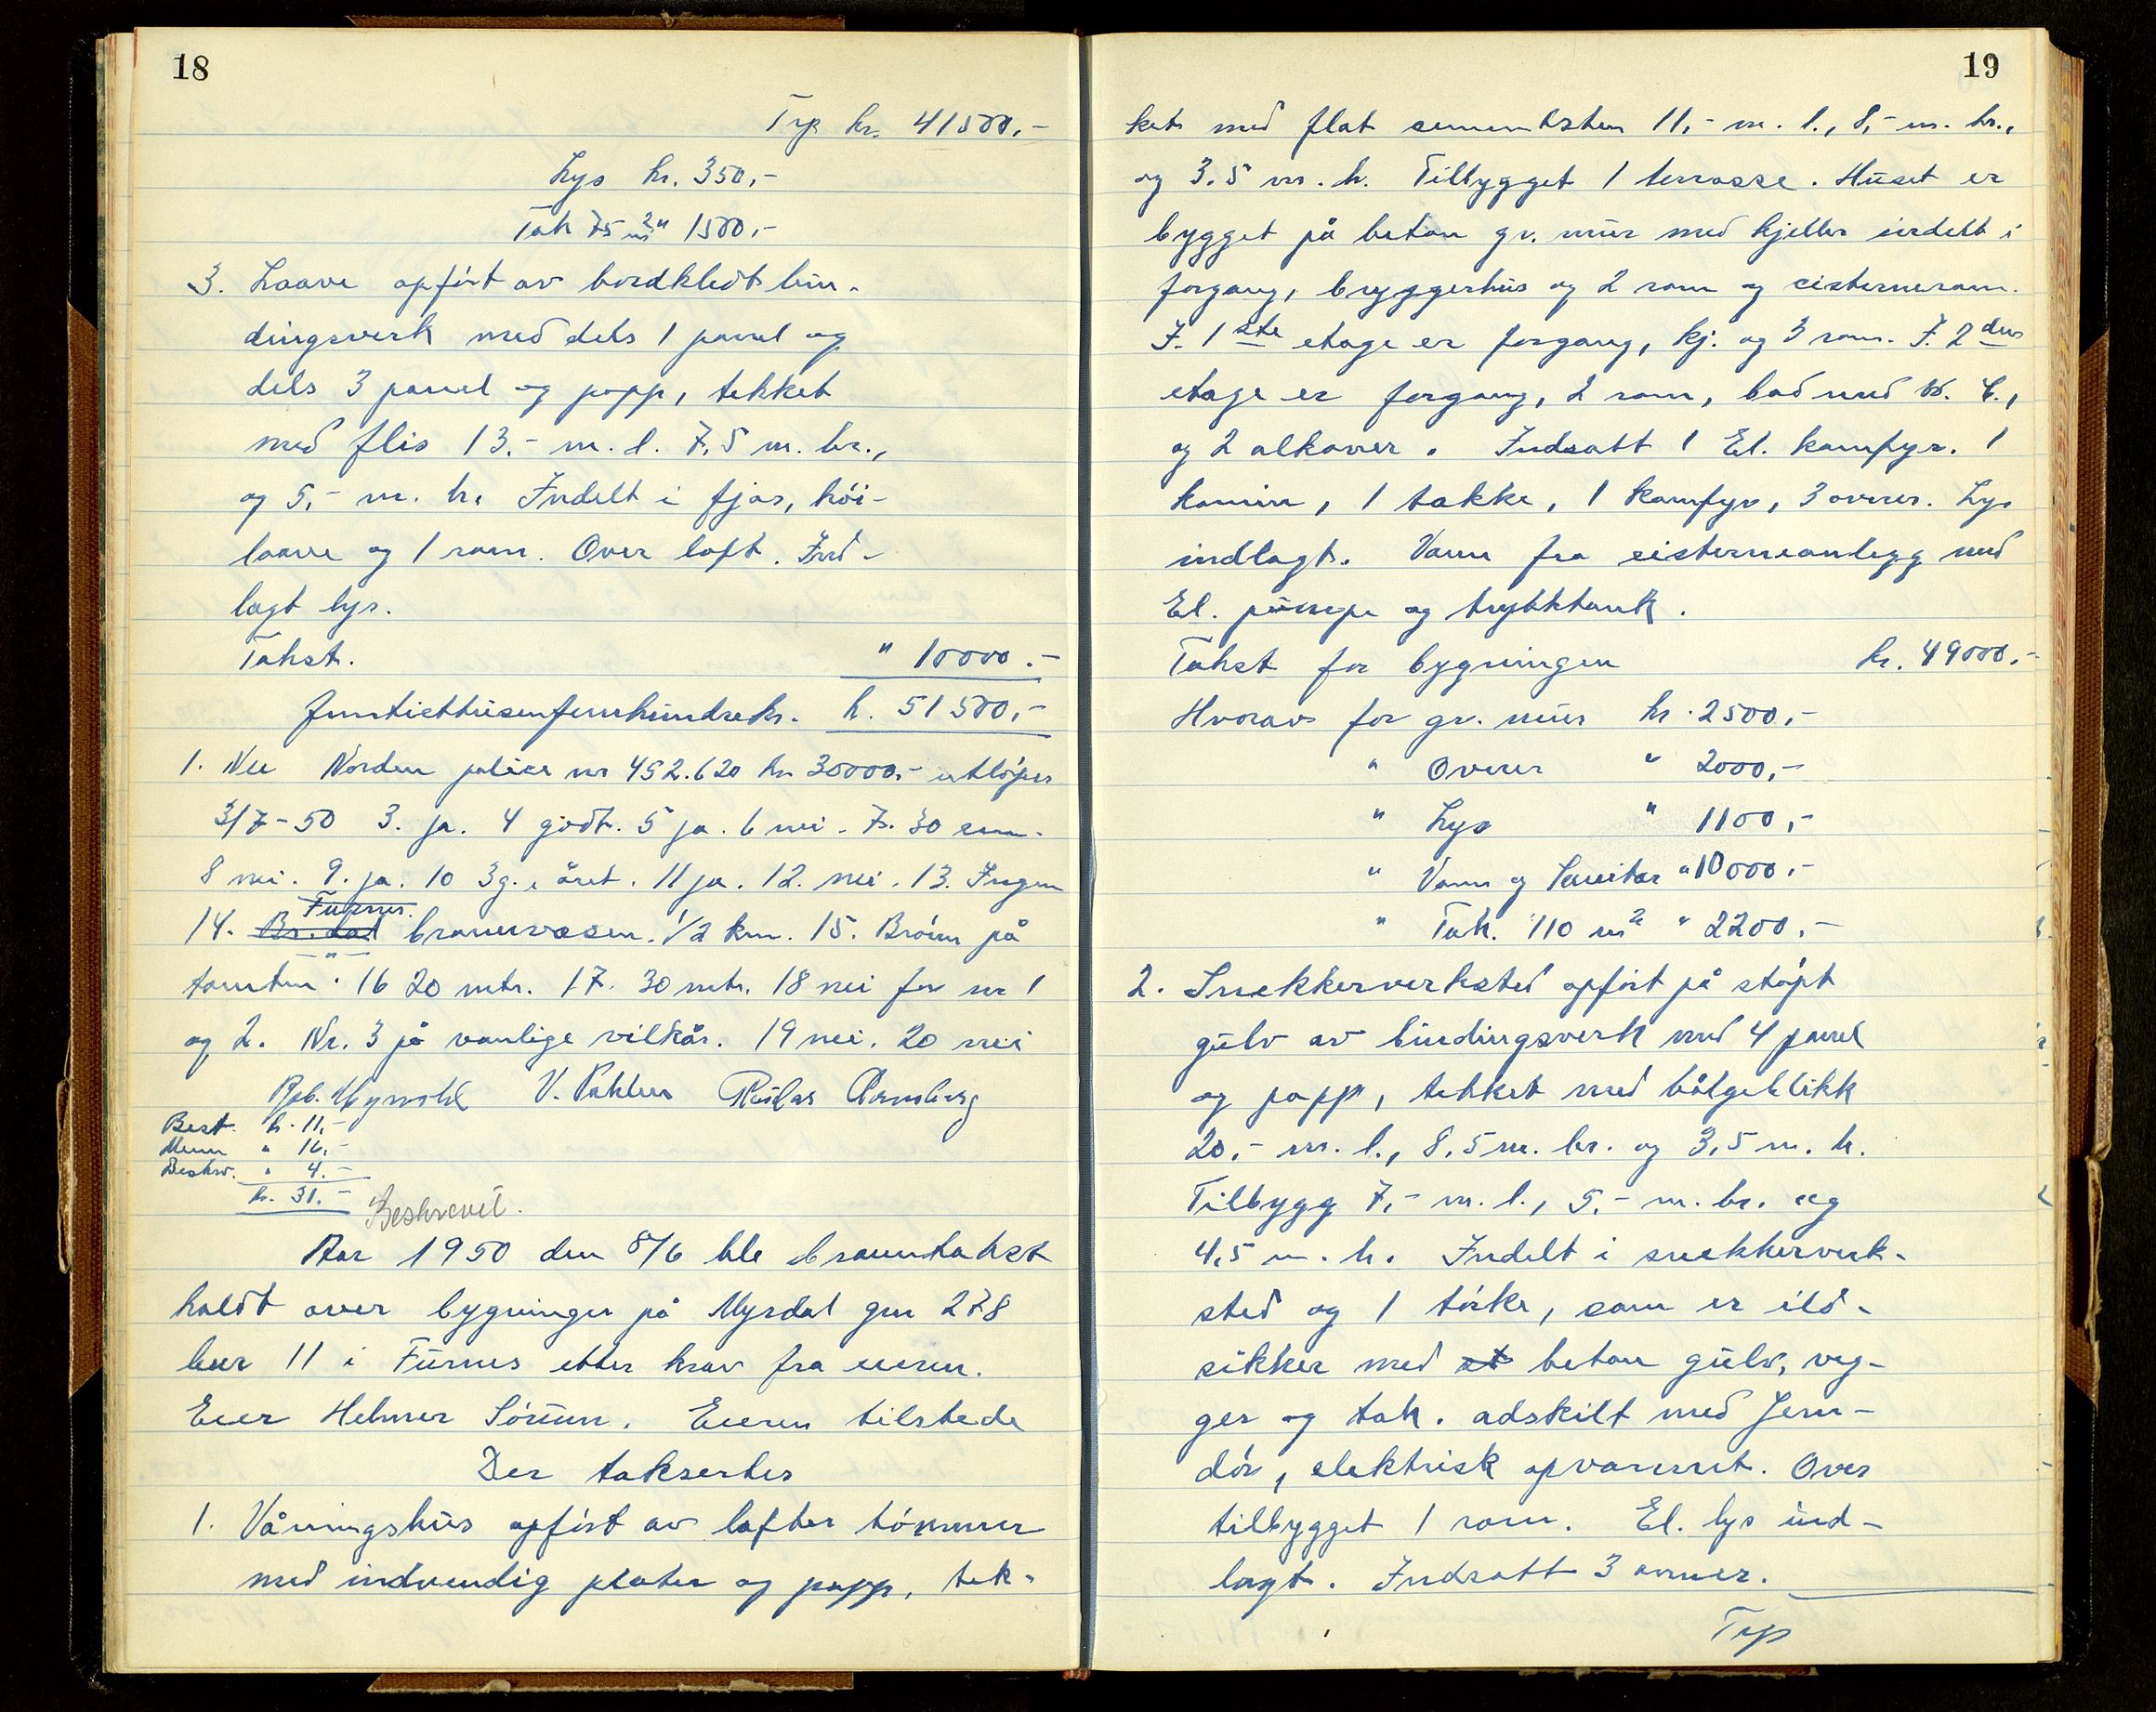 18
Trp kr. 41500,-
Lys kr. 350,-
Tak 75 m² " 1500,-
3. Laave opført av bordkledt bin-
dingsverk med dels 1 panel og
dels 3 panel og papp, tekket
med flis 13,- m. l. 7,5 m. br.,
og 5,- m. h. Indelt i fjøs, höi-
laave og 1 rom. Over loft. Ind-
lagt lys.
Takst. " 10000.-
femtiettusenfemhundrekr. kr. 51500,-
1. Nei Norden police nr 452.620 kr 30000,- utløper
3/7-50 3. ja. 4 godt. 5 ja. 6 nei. 7. 30 cm.
8 nei. 9. ja. 10 3 g. i året. 11 ja. 12. nei. 13. Ingen
Furnes.
14. Br.dal brannvæsen. 1/2 km. 15. Brønn på
tomten. 16 20 mtr. 17. 30 mtr. 18 nei for nr 1
og 2. Nr. 3 på vanlige vilkår. 19 nei. 20 nei
V. Pahlen
Best. kr. 11,-
Menn " 16,-
Beskr. " 4.-
kr. 31.-
Beskrevet.
Aar 1950 den 8/6 ble branntakst
holdt over bygninger på Myrdal gnr 278
bnr 11 i Furnes etter krav fra eieren.
Eier Helmer Sörum. Eieren tilstede
Der taksertes
1. Våningshus opført av laftet tömmer
med indvendig plater og papp, tek-
19
ket med flat sementsten 11,- m. l., 8,- m. br.,
og 3.5 m. h. Tilbygget 1 terrasse. Huset er
bygget på beton gr. mur med kjeller indelt i
forgang, bryggerhus og 2 rom og cisternerom.
I. 1ste etage er forgang, kj. og 3 rom. I. 2den
etage er forgang, 2 rom, bad med W. C.,
og 2 alkover. Indsatt 1 El. komfyr. 1
kamin, 1 takke, 1 komfyr, 3 ovner. Lys
indlagt. Vann fra cisterneanlegg med
El. pumpe og trykktank.
Takst for bygningen kr. 49000.-
Hvorav for gr. mur kr. 2500,-
" Ovner " 2000,-
" Lys " 1100,-
" Vann og Sanitær " 10000.-
" Tak. 110 m² " 2200.-
2. Snekkerverksted opført på støpt
gulv av bindingsverk med 4 panel
og papp, tekket med bølgeblikk
20,- m. l., 8,5 m. br. og 3,5 m. h.
Tilbygg 7,- m. l., 5,- m. br. og
4,5 m. h. Indelt i snekkerverk-
sted og 1 tørke, som er ild-
sikker med st beton gulv, veg-
ger og tak. adskilt med Jern-
dör, elektrisk opvarmet. Over
tilbygget 1 rom. El. lys ind-
lagt. Indsatt 3 ovner.
Trp